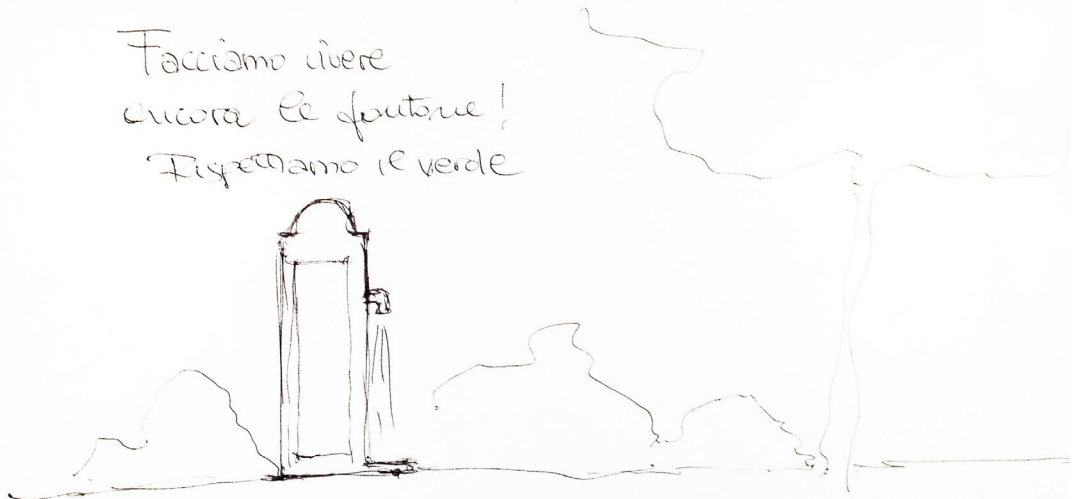 Facciamo vivere
ancora le fontane!
Rispettiamo il verde